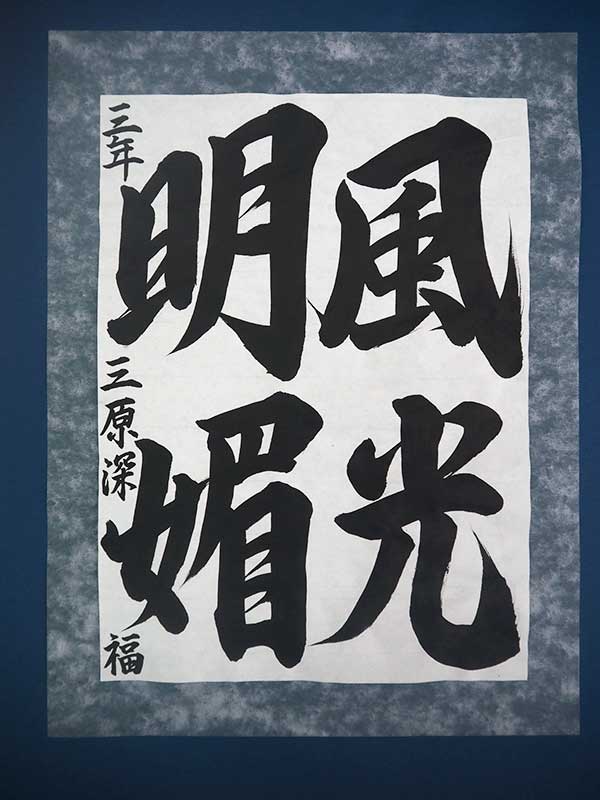 風光
明媚
三年 三原深福